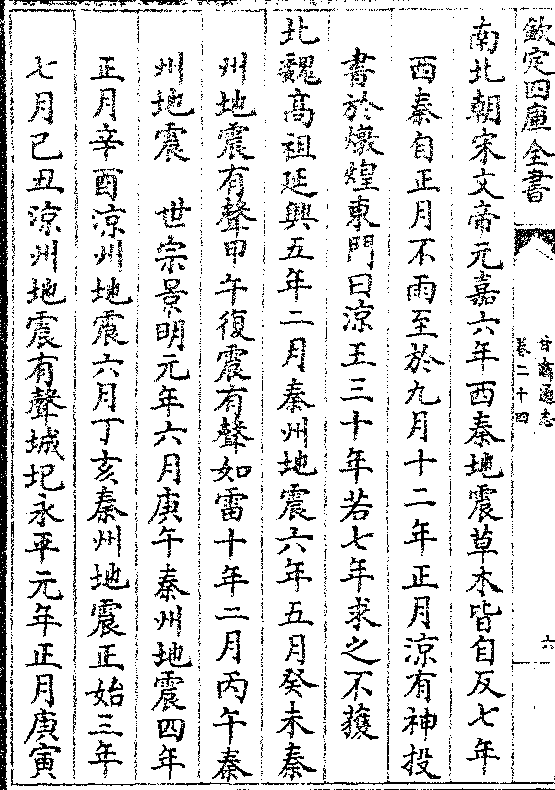 欽定四庫全書
甘肅通志
卷二十四
六
南北朝宋文帝元嘉六年西秦地震草木皆自反七年
西秦自正月不雨至於九月十二年正月涼有神投
書於燉煌東門曰涼王三十年若七年求之不獲
北魏髙祖延興五年二月秦州地震六年五月癸未秦
州地震有聲甲午復震有聲如雷十年二月丙午秦
州地震　世宗景明元年六月庚午秦州地震四年
正月辛酉涼州地震六月丁亥秦州地震正始三年
七月己丑涼州地震有聲城圮永平元年正月庚寅